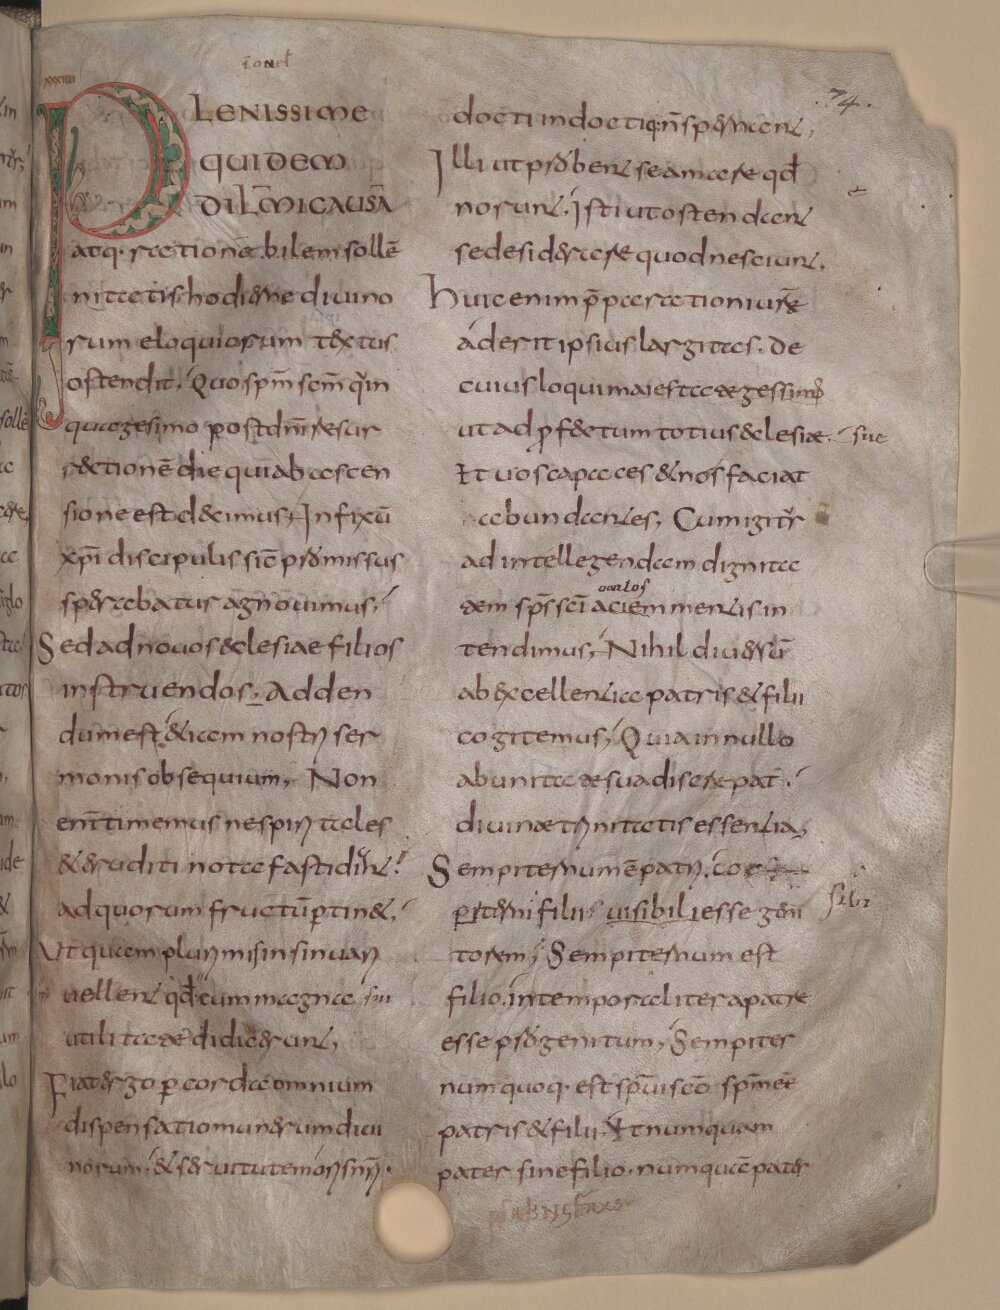 74.
PLENISSIME
QUIDEM
DIL̄MI CAUSĀ
atq· rationabilem sollē
nitatis hodiernę divino
rum eloquiorum textus
ostendit. Quo spm̄ scm̄ qͥn
quagesimo post dn̄i resur
rectionē die qui ab ascen
sione est decimus, In fixū
xp̄i discipulis sic̄ promissus
sperabatur agnovimus,
Sed ad novos ecclesiae filios
instruendos. Adden
dum est etiam nostri ser
monis obsequium, Non
enī timemus ne spiritales
et eruditi nota fastidirent
ad quorum fructū ptinet,
Ut quam plurimis insinuari
vellent qd̄ cum magna sui
utilitate didicerunt,
Fiat ergo p corda omnium
dispensatio munerum divi
norum. et servitutem oris nr̄i.
docti indoctiq: n̄ spernent,
Illi ut probent se amare qd̄
norunt. Isti ut ostendant
se desiderare quod nesciunt.
huic enim p̄paratio nirē
aderit ipsius largitas. De
cuius loqui maiestate gessimus
ut ad pfectum totius ecclesiae. suae
Et vos capaces et nos faciat
abundantes, Cum igitur
ad intellegendam dignita
oculos
tem sps̄ sc̄i aciem mentis in
tendimus, Nihil diversū
ab excellentia patris et filii
cogitemus, Quia in nullo
ab unitate sua discrepat
divinae trinitatis essentia,
Sempiternum ē patri.
filii
filii visibili esse geni
torem, Sempiternum est
filio. intemporaliter a patre
esse progenitum, Sempiter
num quoq· est spūi scō spm̄ eē
patris et filii. Et numquam
pater sine filio. numquā pater